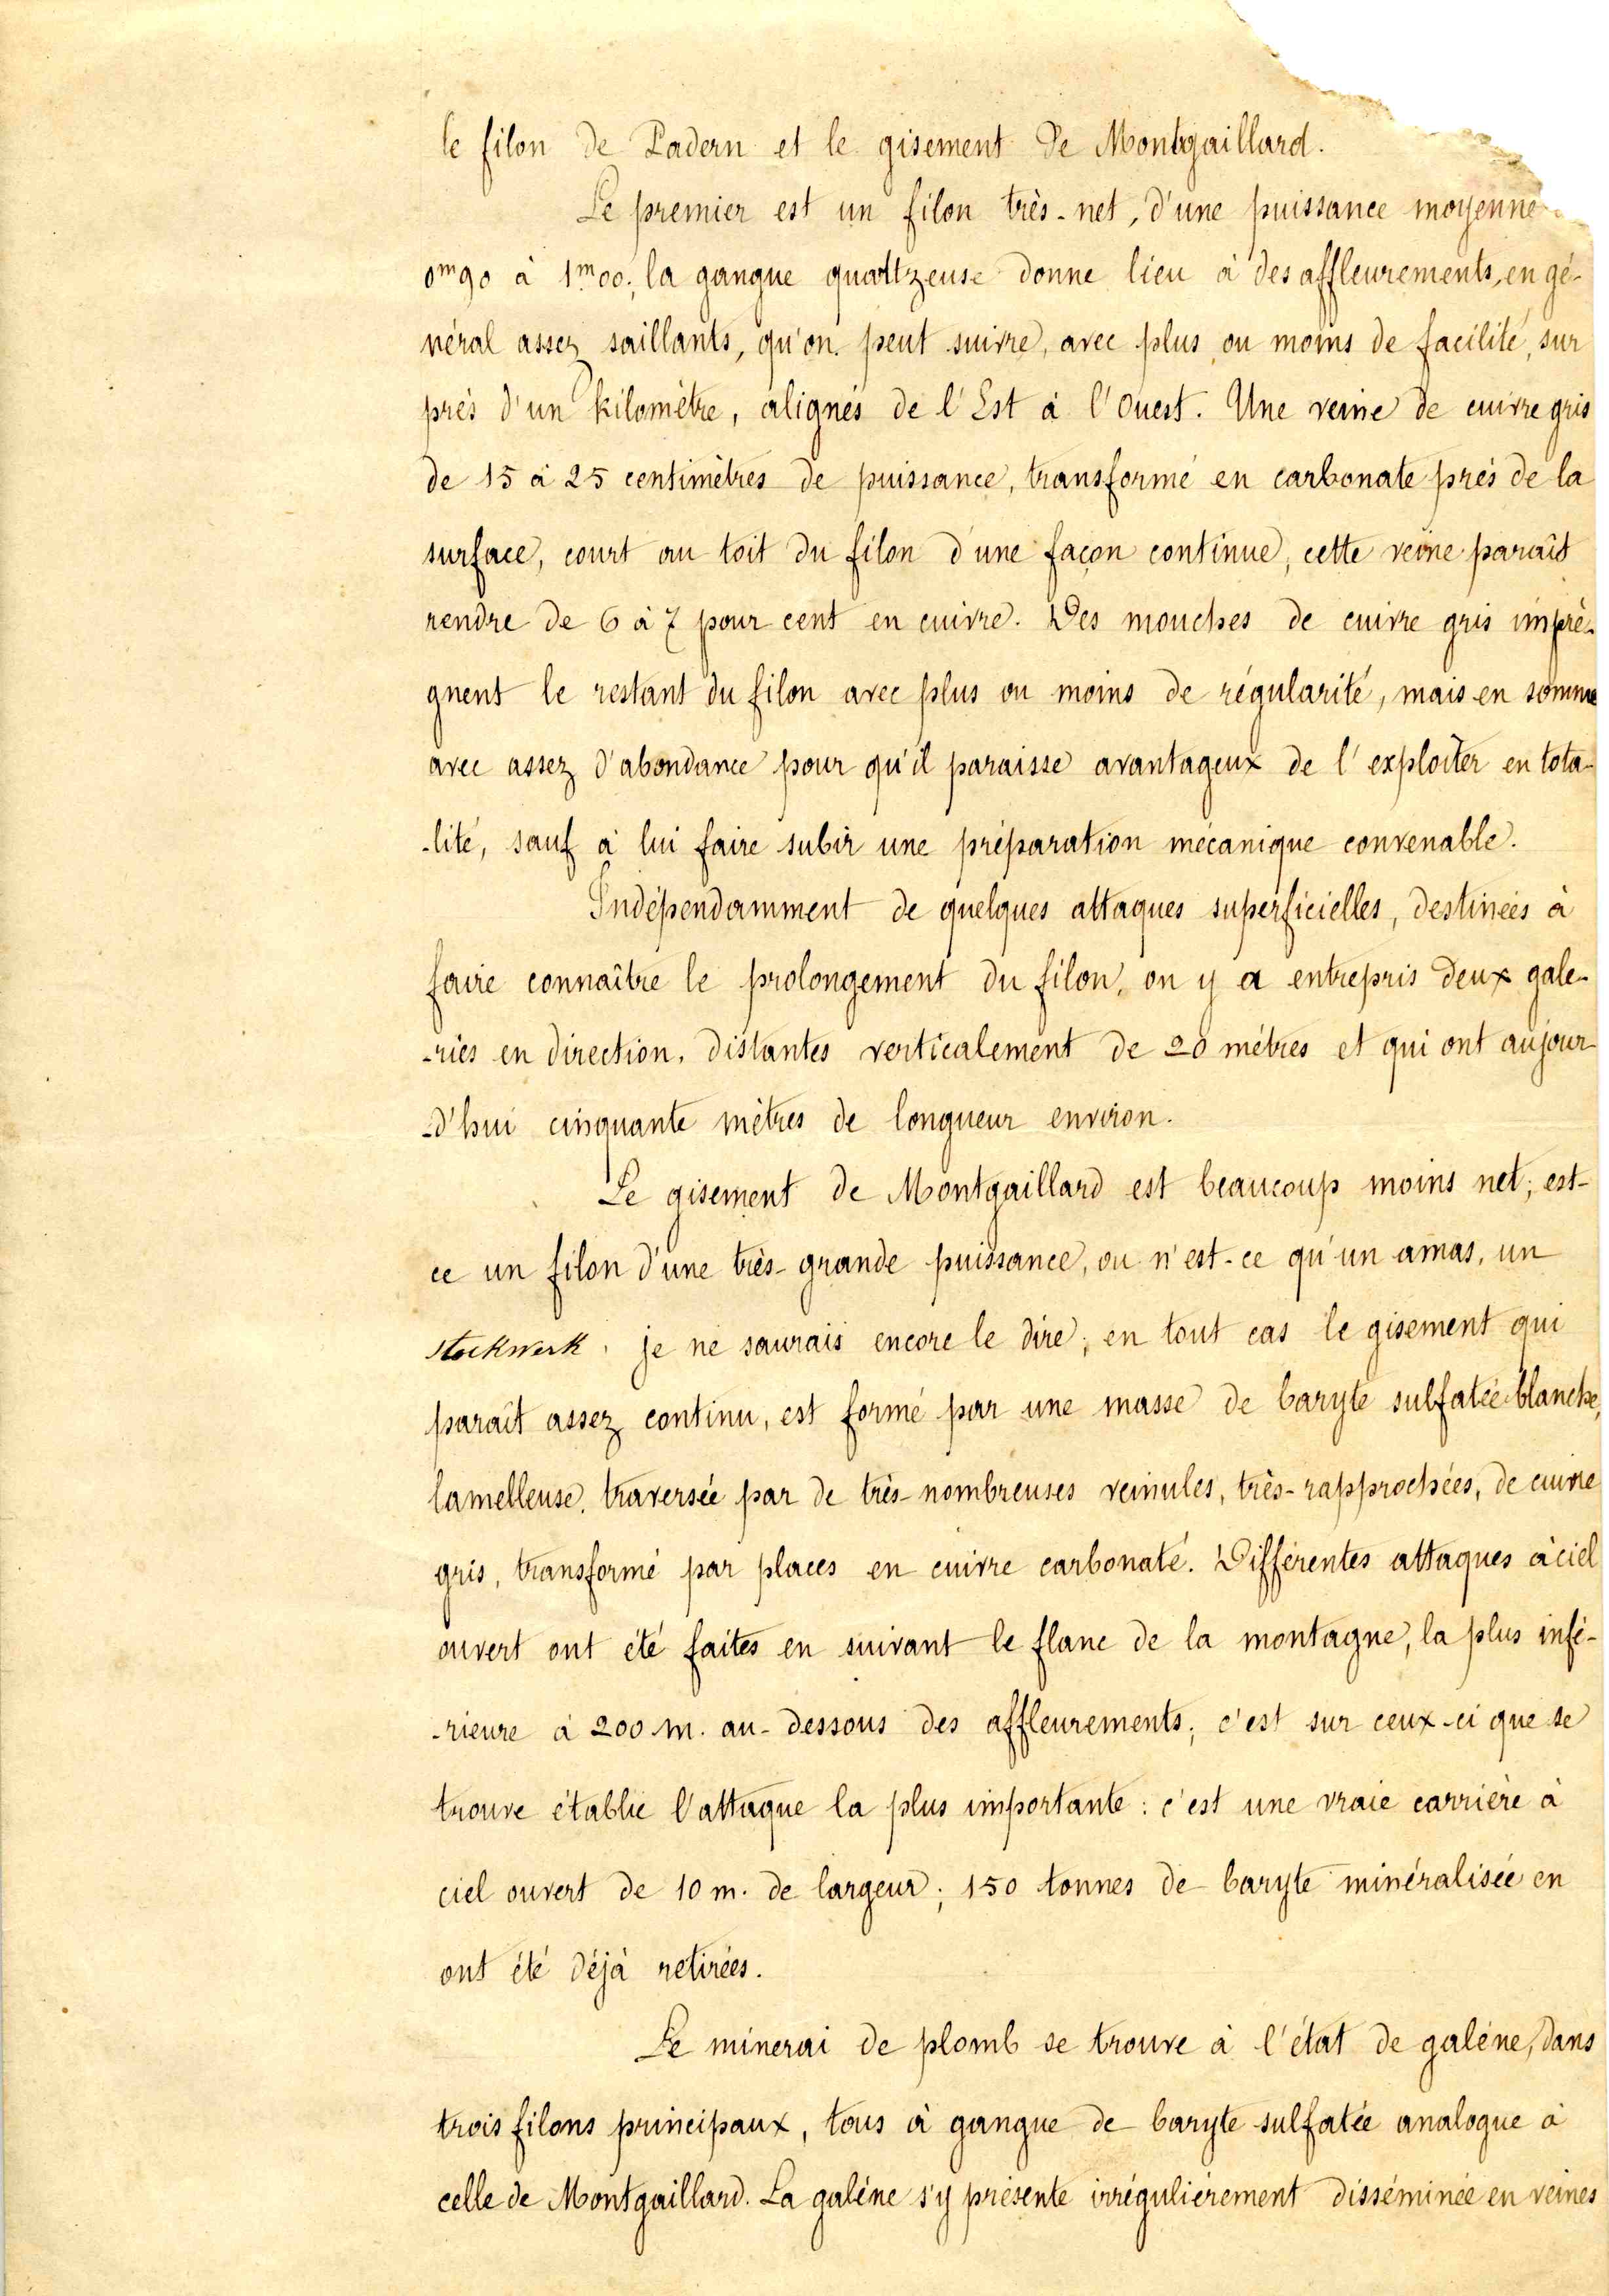 le filon de Padern et le gisement de Montgaillard.
Le premier est un filon très-net, d'une puissance moyenne
0m90 à 1m00; la gangue quartzeuse donne lieu à des affleurements, en gé-
néral assez saillants, qu'on peut suivre, avec plus ou moins de facilité, sur
près d'un kilomètre, alignés de l'Est à l'Ouest. Une veine de cuivre gris
de 15 à 25 centimètres de puissance, transformé en carbonate près de la
surface, court au toit du filon d'une façon continue, cette veine paraît
rendre de 6 à 7 pour cent en cuivre. Des mouches de cuivre gris imprè-
gnent le restant du filon avec plus ou moins de régularité, mais en somme
avec assez d'abondance pour qu'il paraisse avantageux de l'exploiter en tota-
-lité, sauf à lui faire subir une préparation mécanique convenable.
Indépendamment de quelques attaques superficielles, destinées à
faire connaître le prolongement du filon, on y a entrepris deux gale-
-ries en direction, distantes verticalement de 20 mètres et qui ont aujour-
-d'hui cinquante mètres de longueur environ.
Le gisement de Montgaillard est beaucoup moins net; est-
ce un filon d'une très-grande puissance, ou n'est-ce qu'un amas, un
stockwerk, je ne saurais encore le dire; en tout cas le gisement qui
paraît assez continu, est formé par une masse de baryte sulfatée blanche,
lamelleuse, traversée par de très-nombreuses veinules, très-rapprochées, de cuivre
gris, transformé par places en cuivre carbonaté. Différentes attaques à ciel
ouvert ont été faites en suivant le flanc de la montagne, la plus infé-
-rieure à 200 m. au-dessous des affleurements; c'est sur ceux-ci que se
trouve établie l'attaque la plus importante: c'est une vraie carrière à
ciel ouvert de 10 m. de largeur; 150 tonnes de baryte minéralisée en
ont été déjà retirées.
Le minerai de plomb se trouve à l'état de galène, dans
trois filons principaux, tous à gangue de baryte sulfatée analogue à
celle de Montgaillard. La galène s'y présente irrégulièrement disséminée en veines